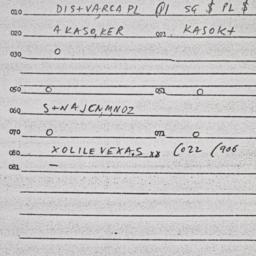 010 DIS+VARCA PL (P1 SG $ PL $
020 AKASO,KER 021 KASOK+
030 O
050 O 051 O
060 S+NAJCN,MNOZ
070 O 071 O
080 XOLILEVEXA,S xx (022 (906
081 —